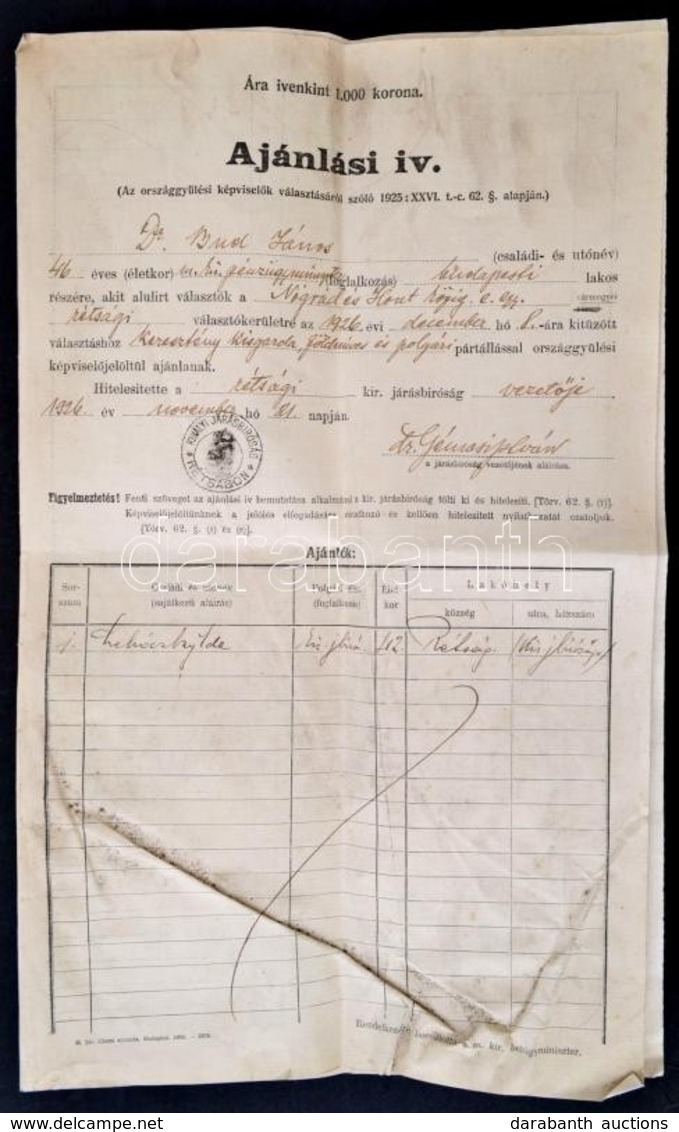 Ára ivenkint 1.000 korona.
Ajánlási iv.
(Az országgyülési képviselők választásáról szóló 1925 : XXVI. t.-c. 62. §. alapján.)
Dr Bud János (családi- és utónév)
46 éves (életkor) m. kir. pénzügyminiszter (foglalkozás) budapesti lakos
részére, akit alulirt választók a Nógrád és Hont közig. e. egy. vármegyei
rétsági választókerületre az 1926. évi december hó 8.-ára kitüzött
választáshoz Keresztény kisgazda, földmives és polgári pártállással országgyülési
képviselőjelöltül ajánlanak.
Hitelesitette a rétsági kir. járásbiróság vezetője
1926. év november hó 21. napján.
KIRÁLYI JÁRÁSBIRÓSÁG RÉTSÁGON
Dr.
a járásbiróság vezetőjének aláirása.
Figyelmeztetés! Fenti szöveget az ajánlási iv bemutatása alkalmával a kir. járásbiróság tölti ki és hitelesiti. [Törv. 62. §.
Képviselőjelöltünknek a jelölés elfogadására vonatkozó és kellően hitelesitett nyilatkozatát csatoljuk.
[Törv. 62. §.
Ajánlók:
Sor-szám
Családi és utónév (sajátkezű aláirás)
Polgári áll. (foglalkozás)
Élet-kor
Lakóhely
község
utca, házszám
1. kir. jbiró 42. Rétság.
Rendelkezésre bocsátotta a m. kir. belügyminiszter.
darabanth
delcampe.net
darabanth auctions